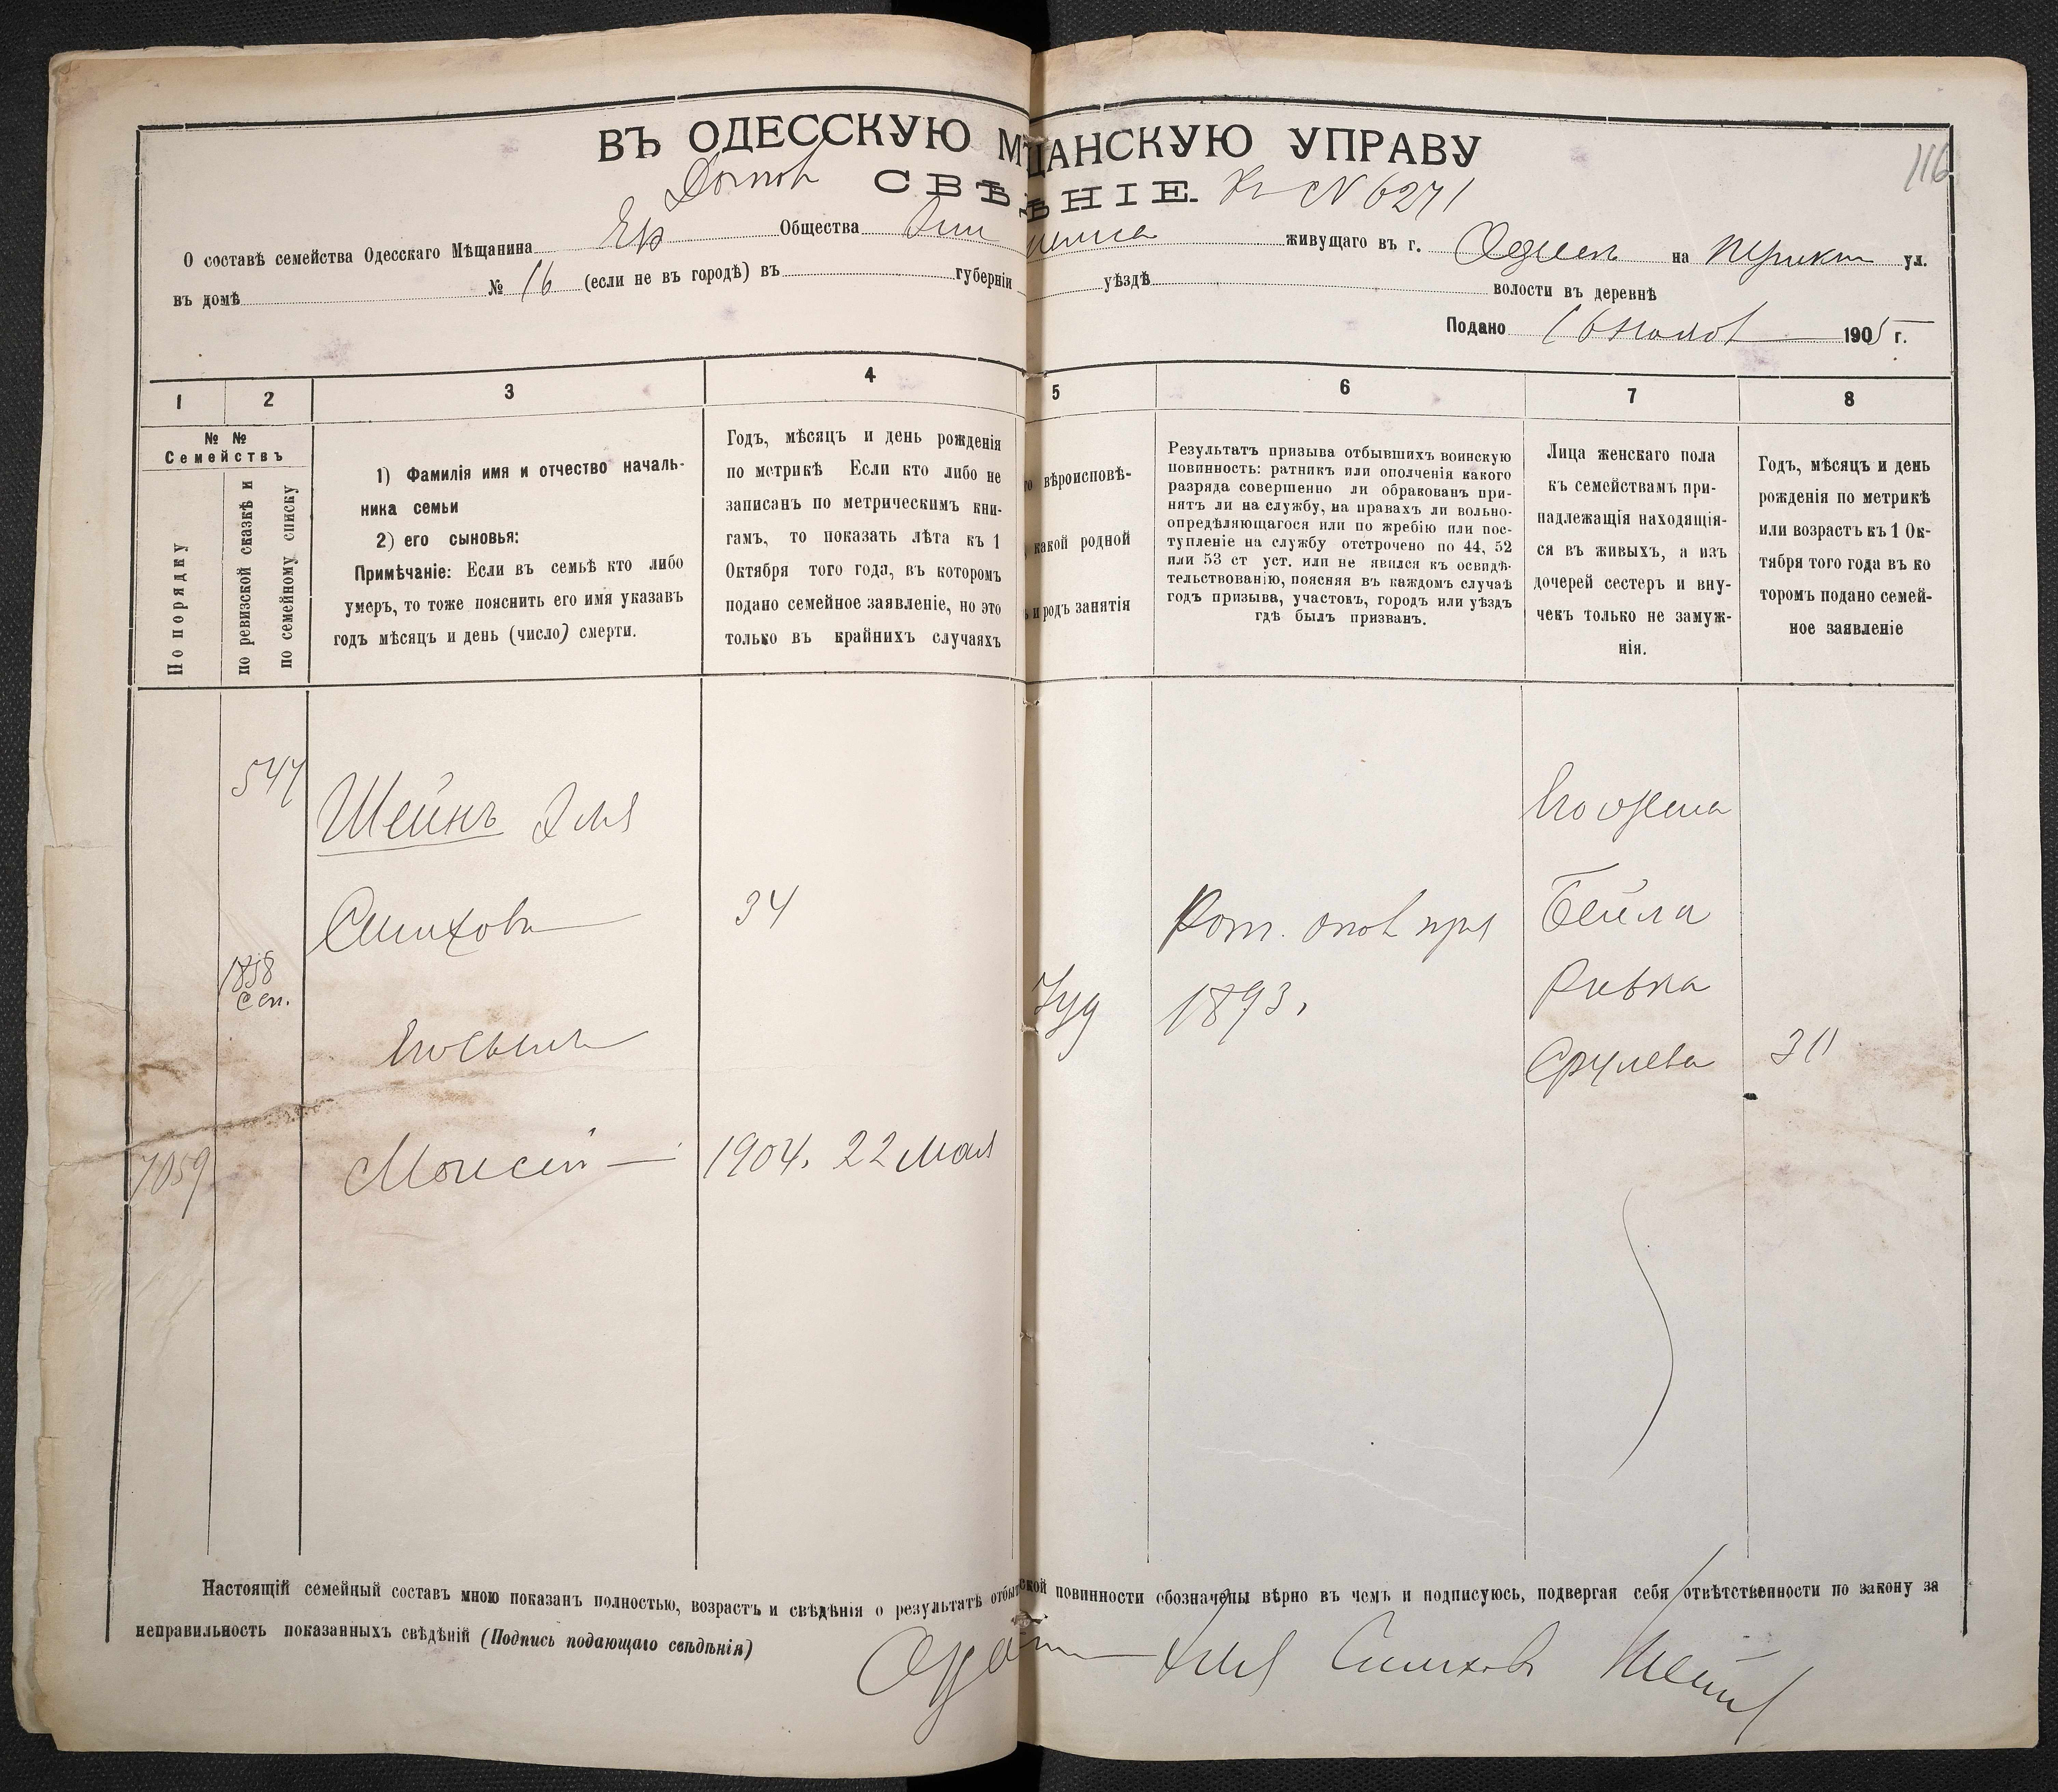 ВЪ ОДЕССКУЮ М ЩАНСКУЮ УПРАВУ
116
СВѢ НІЕ. № 6271
О составѣ семейства Одесскаго Мѣщанина Евр Общества живущаго въ г. Одессѣ на ул.
въ домѣ № 16 (если не въ городѣ) въ губерніи уѣздѣ волости въ деревнѣ
Подано 16 1905 г.
1 2 3 4 5 6 7 8
№ №
Семействъ
По порядку
по ревизской сказкѣ и
по семейному списку
1) Фамилія имя и отчество началь-
ника семьи
2) его сыновья:
Примѣчаніе: Если въ семьѣ кто либо
умеръ, то тоже пояснить его имя указавъ
годъ мѣсяцъ и день (число) смерти.
Годъ, мѣсяцъ и день рожденія
по метрикѣ Если кто либо не
записанъ по метрическимъ кни-
гамъ, то показать лѣта къ 1
Октября того года, въ которомъ
подано семейное заявленіе, но это
только въ крайнихъ случаяхъ
вѣроисповѣ-
какой родной
и родъ занятія
Результатъ призыва отбывшихъ воинскую
повинность: ратникъ или ополченія какого
разряда совершенно ли обракованъ при-
нятъ ли на службу, на правахъ ли вольно-
опредѣляющагося или по жребію или пос-
тупленіе на службу отстрочено по 44, 52
или 53 ст уст. или не явился къ освидѣ-
тельствованію, поясняя въ каждомъ случаѣ
годъ призыва, участокъ, городъ или уѣздъ
гдѣ былъ призванъ.
Лица женскаго пола
къ семействамъ при-
надлежащія находящія-
ся въ живыхъ, а изъ
дочерей сестеръ и вну-
чекъ только не замуж-
нія.
Годъ, мѣсяцъ и день
рожденія по метрикѣ
или возрастъ къ 1 Ок-
тября того года въ ко
торомъ подано семей-
ное заявленіе
547
Шейнъ Эля
Симховъ
34
1858
Сен.
Его сынъ
7059
Моисей
1904. 22 Мая
Іуд
Рат. опол приз
1893.
Его жена
Бейла
Ривка
Срулева
30
Настоящій семейный составъ мною показанъ полностью, возрастъ и свѣдѣнія о результатѣ отбы ской повинности обозначены вѣрно въ чемъ и подписуюсь, подвергая себя отвѣтственности по закону за
неправильность показанныхъ свѣдѣній (Подпись подающаго свѣдѣнія)
Эля Симховъ Шейнъ